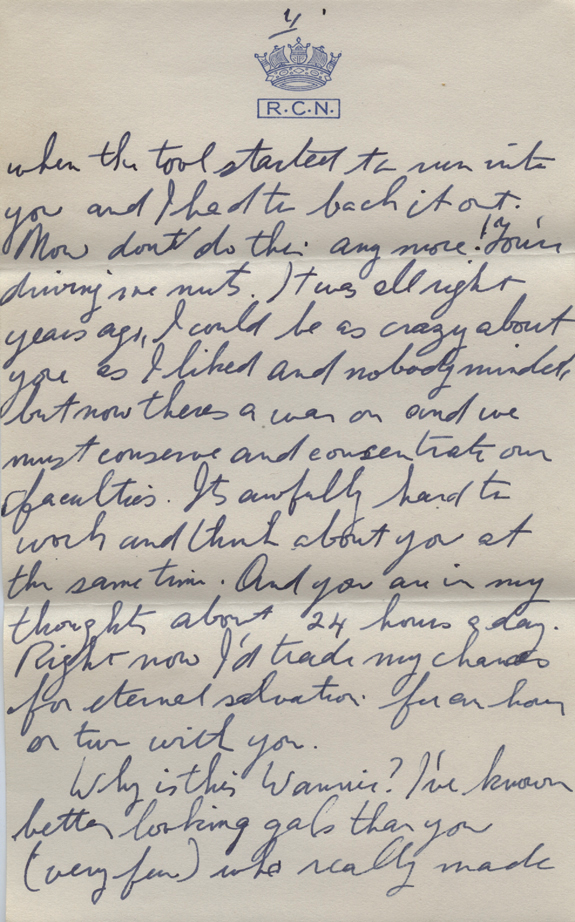 4
R.C.N.
when the tool started to run into
you and I had to back it out.
Now dont do this any more! You're
driving me nuts. It was all right
years ago, I could be as crazy about
you as I liked and nobody minded,
but now theres a war on and we
must conserve and concentrate our
faculties. Its awfully hard to
work and think about you at
the same time. And you are in my
thoughts about 24 hours a day.
Right now I'd trade my chances
for eternal salvation for an hour
or two with you.
Why is this Wannie? I've known
better looking gals than you
(very few) who really made